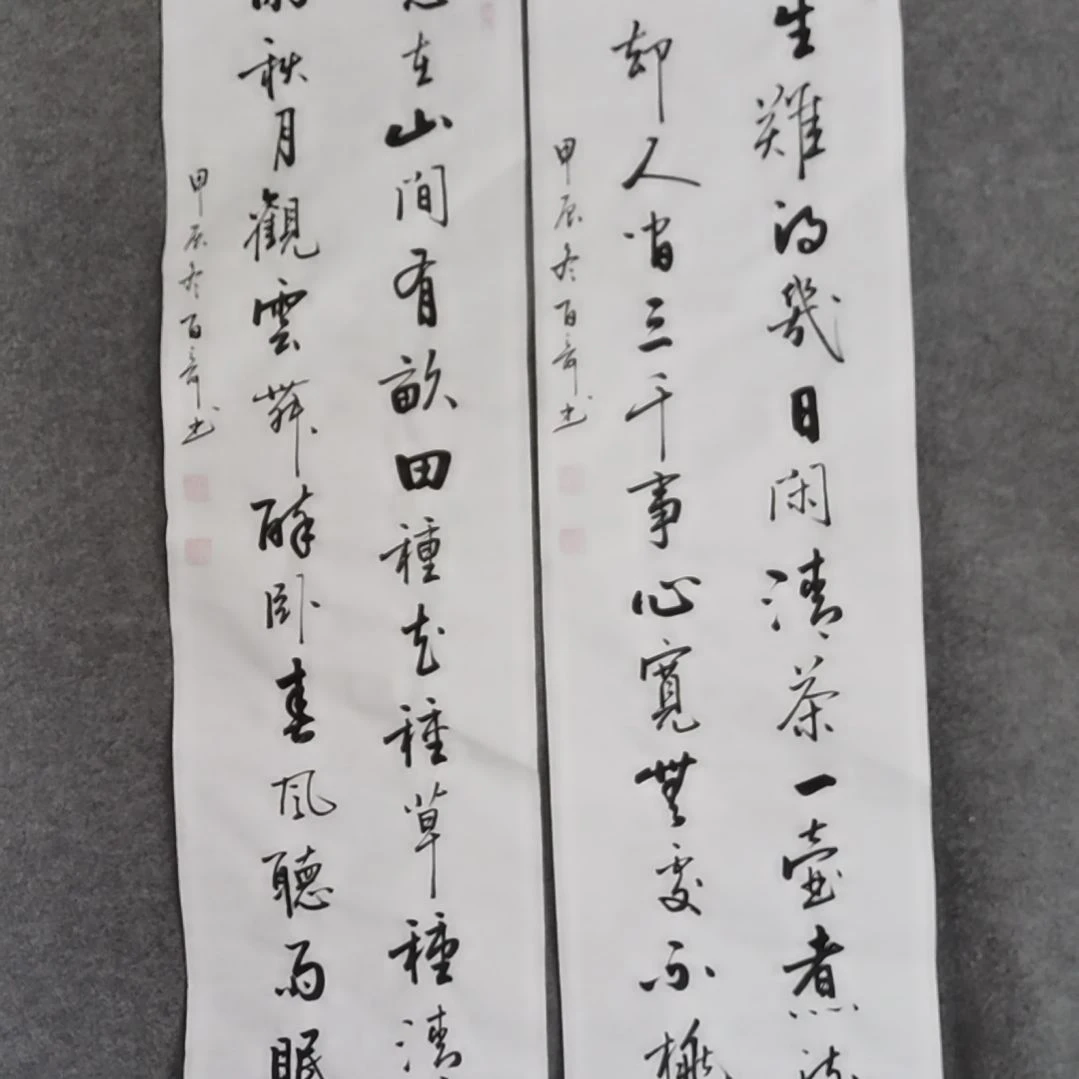 生難得幾日閑清茶一壺煮流
却人間三千事心寬無處不桃
甲辰冬百奇书
在山間有畝田種花種草種清
秋月觀雲舞醉卧春風聽雨眠
甲辰冬百奇书